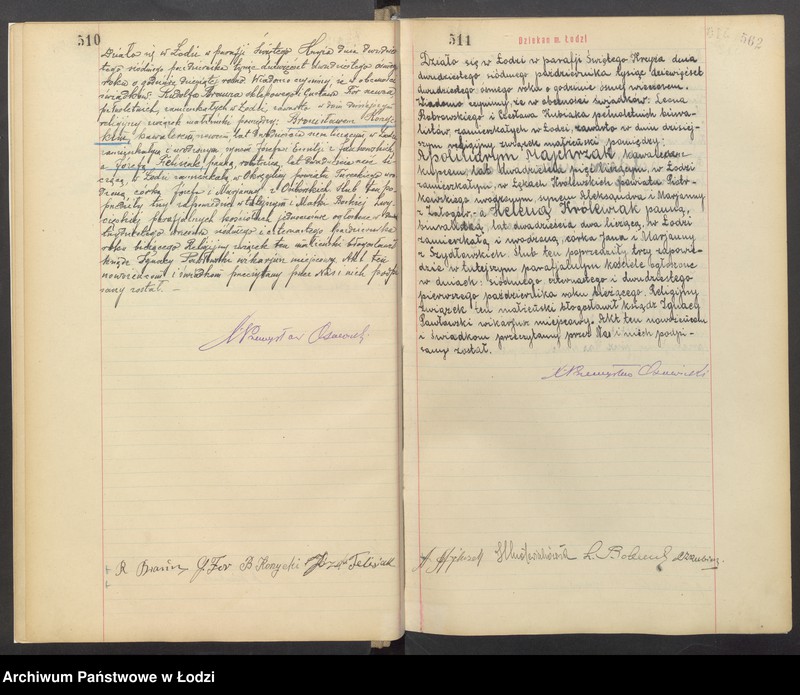 510
Działo się w Łodzi w parafji Świętego Krzyża dnia dwudzies-
tego siódmego października tysiąc dziewięćset dwudziestego ósmego
roku o godzinie wieczór. Wiadomo czynimy, że w obecności
świadków: Rudolfa Brauera sklepowego i Gustawa For
pełnoletnich, zamieszkałych w Łodzi, zawarto w dniu dzisiejszym
religijny związek małżeński pomiędzy: Bronisławem
kawalerem, lat liczącym w Łodzi
zamieszkałym i urodzonym synem Józefa i
a Józefą Felisiak panną, robotnicą, lat dwadzieścia li-
czącą, w Łodzi zamieszkałą, w powiatu Tureckiego uro-
dzoną córką Józefa i Marjanny z Ślub ten po-
przedziły trzy zapowiedzi w tutejszym i Matki Boskiej Zwy-
cięskiej parafjalnych kościołach jednocześnie ogłoszone w dniach
września siódmego i czternastego października
roku bieżącego. Religijny związek ten małżeński błogosławił
ksiądz Ignacy Pawłowski wikarjusz miejscowy. Akt ten
nowożeńcom i świadkom przeczytany przez Nas i nich podpi-
sany został. —
X Przemysław
R Brauer G For B Józefa Felisiak
511
Dziekan m. Łodzi
562
Działo się w Łodzi w parafji Świętego Krzyża dnia
dwudziestego siódmego października tysiąc dziewięćset
dwudziestego ósmego roku o godzinie ósmej wieczorem.
Wiadomo czynimy, że w obecności świadków: Leona
Bobrowskiego i Czesława Kubiaka pełnoletnich biura-
listów, zamieszkałych w Łodzi, zawarto w dniu dzisiej-
szym religijny związek małżeński pomiędzy:
Apolinarym Majchrzak kawalerem
kupcem lat dwadzieścia pięć liczącym, w Łodzi
zamieszkałym, w Łękach Królewskich powiatu Piotr-
kowskiego urodzonym, synem Aleksandra i Marjanny
z Łatogów, a Heleną Królewiak panną,
lat dwadzieścia dwa liczącą, w Łodzi
zamieszkałą i urodzoną, córką Jana i Marjanny
z Szydłowskich. Ślub ten poprzedziły trzy zapowie-
dzie w tutejszym parafjalnym kościele ogłoszone
w dniach: siódmego, czternastego i dwudziestego
pierwszego października roku bieżącego. Religijny
związek ten małżeński błogosławił ksiądz Ignacy
Pawłowski wikarjusz miejscowy. Akt ten nowożeńcom
i świadkom przeczytany przez Nas i nich podpi-
sany został.
X Przemysław
Archiwum Państwowe w Łodzi